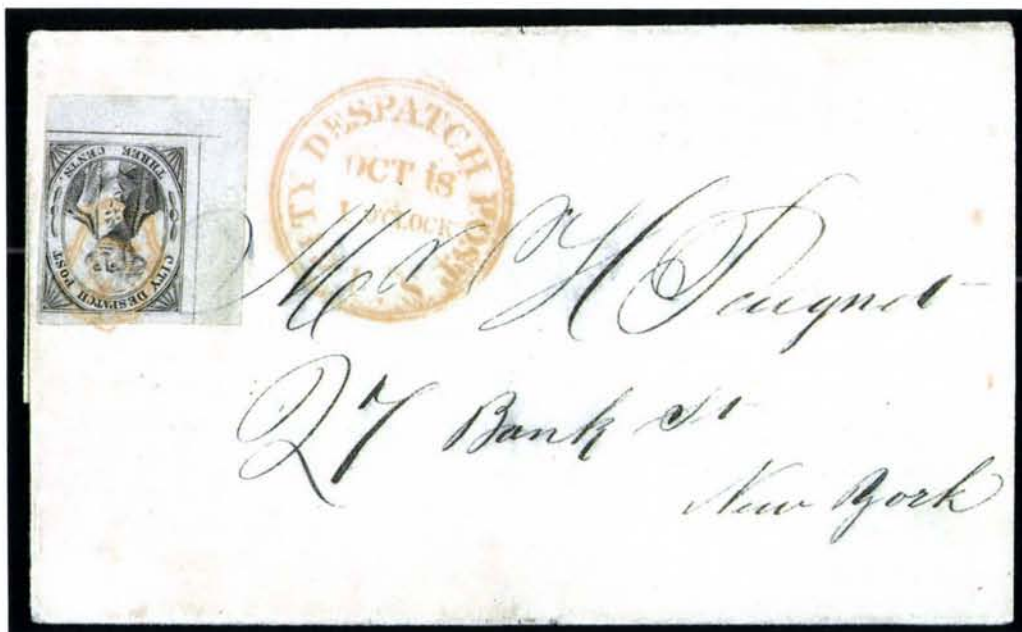 CITY DESPATCH POST
THREE CENTS.
CITY DESPATCH POST
OCT 18
O'CLOCK
N.Y.
Mr H Pauqnet
27 Bank St
New York